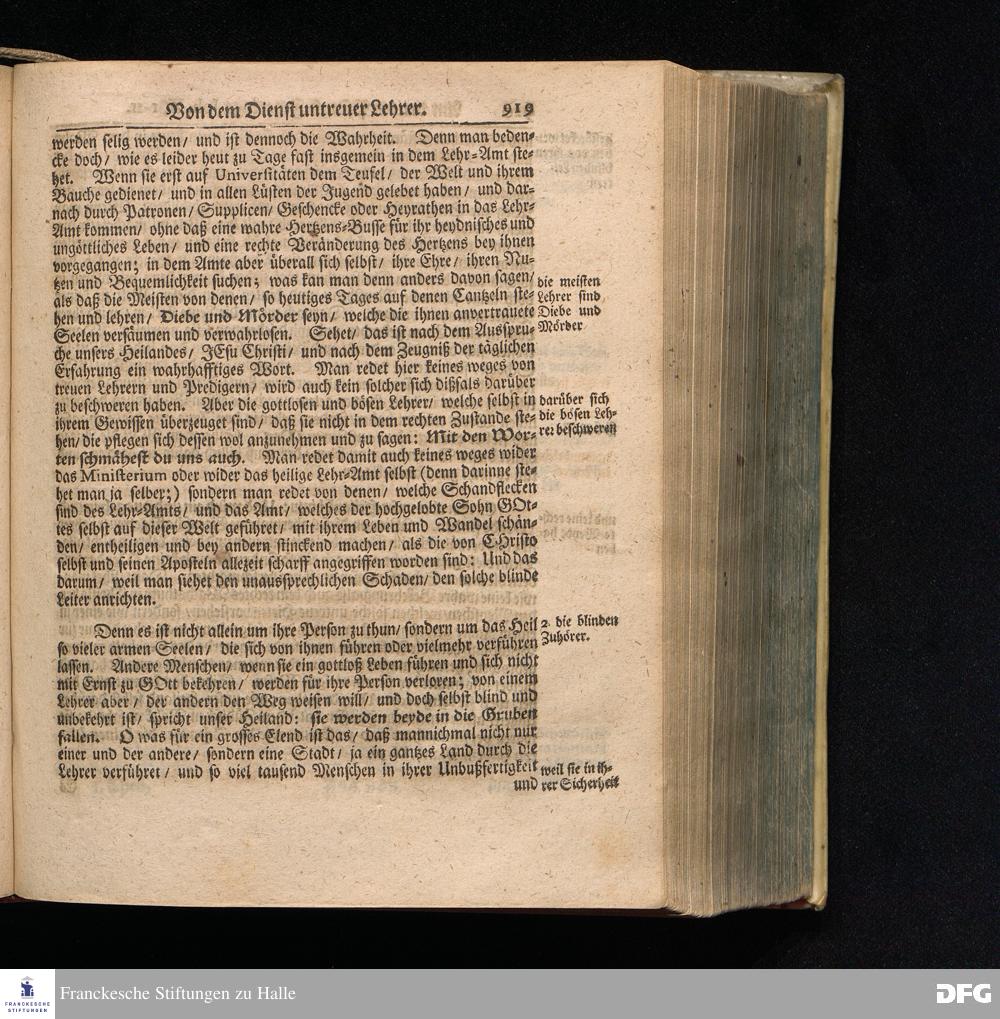 Von dem Dienst untreuer Lehrer. 919
werden selig werden/ und ist dennoch die Wahrheit. Denn man beden-
cke doch/ wie es leider heut zu Tage fast insgemein in dem Lehr-Amt ste-
het. Wenn sie erst auf Universitäten dem Teufel/ der Welt und ihrem
Bauche gedienet/ und in allen Lüsten der Jugend gelebet haben/ und dar-
nach durch Patronen/ Supplicen/ Geschencke oder Heyrathen in das Lehr-
Amt kommen/ ohne daß eine wahre Hertzens-Busse für ihr heydnisches und
ungöttliches Leben/ und eine rechte Veränderung des Hertzens bey ihnen
vorgegangen; in dem Amte aber überall sich selbst/ ihre Ehre/ ihren Nu-
tzen und Bequemlichkeit suchen; was kan man denn anders davon sagen/
als daß die Meisten von denen/ so heutiges Tages auf denen Cantzeln ste-
hen und lehren/ Diebe und Mörder seyn/ welche die ihnen anvertrauete
Seelen versäumen und verwahrlosen. Sehet/ das ist nach dem Ausspru-
che unsers Heilandes/ JEsu Christi/ und nach dem Zeugniß der täglichen
Erfahrung ein wahrhafftiges Wort. Man redet hier keines weges von
treuen Lehrern und Predigern/ wird auch kein solcher sich dißfals darüber
zu beschweren haben. Aber die gottlosen und bösen Lehrer/ welche selbst in
ihrem Gewissen überzeuget sind/ daß sie nicht in dem rechten Zustande ste-
hen/ die pflegen sich dessen wol anzunehmen und zu sagen: Mit den Wor-
ten schmähest du uns auch. Man redet damit auch keines weges wider
das Ministerium oder wider das heilige Lehr-Amt selbst (denn darinne ste-
het man ja selber;) sondern man redet von denen/ welche Schandflecken
sind des Lehr-Amts/ und das Amt/ welches der hochgelobte Sohn GOt-
tes selbst auf dieser Welt geführet/ mit ihrem Leben und Wandel schän-
den/ entheiligen und bey andern stinckend machen/ als die von CHristo
selbst und seinen Aposteln allezeit scharff angegriffen worden sind: Und das
darum/ weil man siehet den unaussprechlichen Schaden/ den solche blinde
Leiter anrichten.
die meisten
Lehrer sind
Diebe und
Mörder
darüber sich
die bösen Leh-
rer beschweren
Denn es ist nicht allein um ihre Person zu thun/ sondern um das Heil
so vieler armen Seelen/ die sich von ihnen führen oder vielmehr verführen
lassen. Andere Menschen/ wenn sie ein gottloß Leben führen und sich nicht
mit Ernst zu GOtt bekehren/ werden für ihre Person verloren; von einem
Lehrer aber/ der andern den Weg weisen will/ und doch selbst blind und
unbekehrt ist/ spricht unser Heiland: sie werden beyde in die Gruben
fallen. O was für ein grosses Elend ist das/ daß mannichmal nicht nur
einer und der andere/ sondern eine Stadt/ ja ein gantzes Land durch die
Lehrer verführet/ und so viel tausend Menschen in ihrer Unbußfertigkeit
und
2. die blinden
Zuhörer.
weil sie in ih-
rer Sicherheit
FRANCKESCHE
STIFTUNGEN
Franckesche Stiftungen zu Halle
DFG